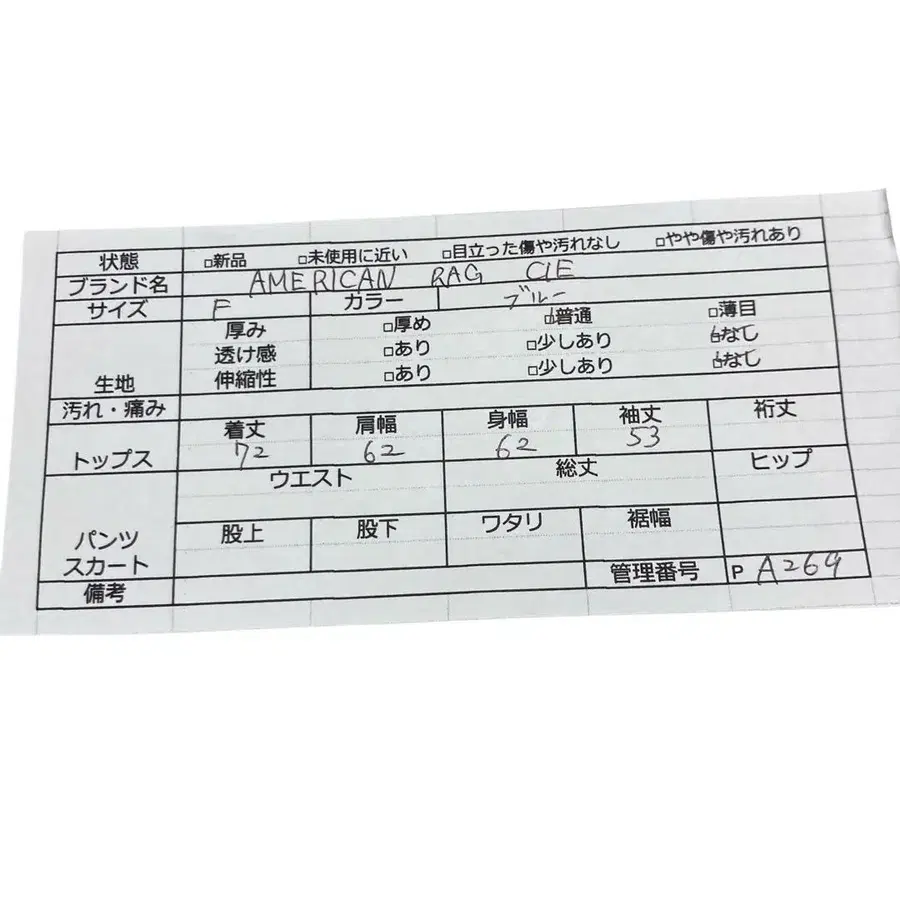 状態 □新品 □未使用に近い □目立った傷や汚れなし □やや傷や汚れあり
ブランド名 AMERICAN RAG CIE
サイズ F カラー ブルー
生地 厚み □厚め □普通 □薄目
透け感 □あり □少しあり □なし
伸縮性 □あり □少しあり □なし
汚れ・痛み
トップス 着丈 肩幅 身幅 袖丈 裄丈
72 62 62 53
パンツ スカート ウエスト 総丈 ヒップ
股上 股下 ワタリ 裾幅
備考 管理番号 P A269